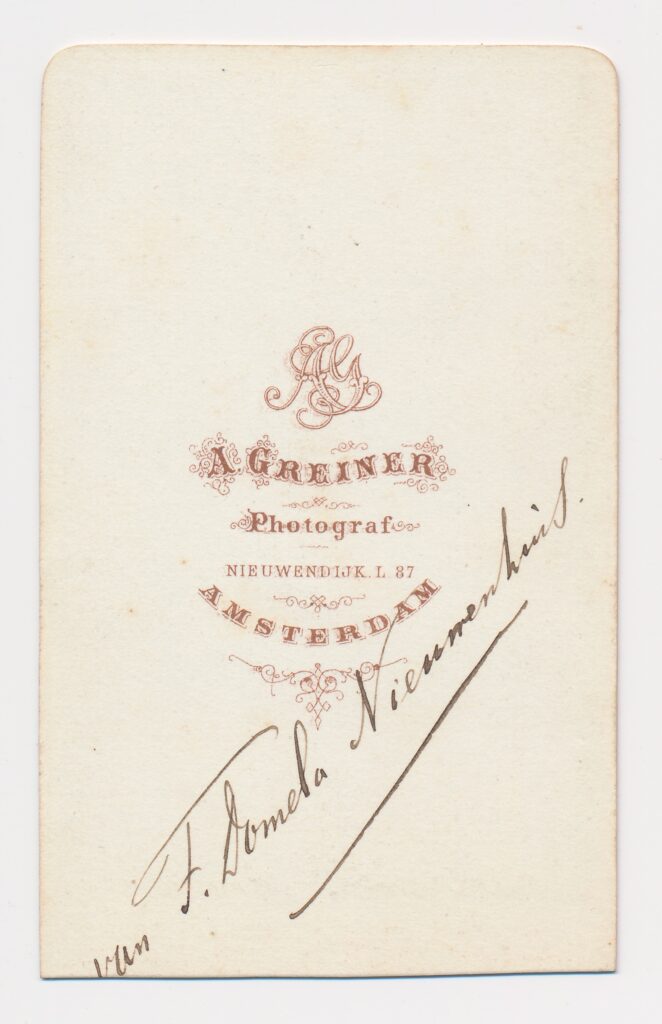 AG
A. GREINER
Photograf
NIEUWENDIJK. L 87
AMSTERDAM
van F. Domela Nieuwenhuis.